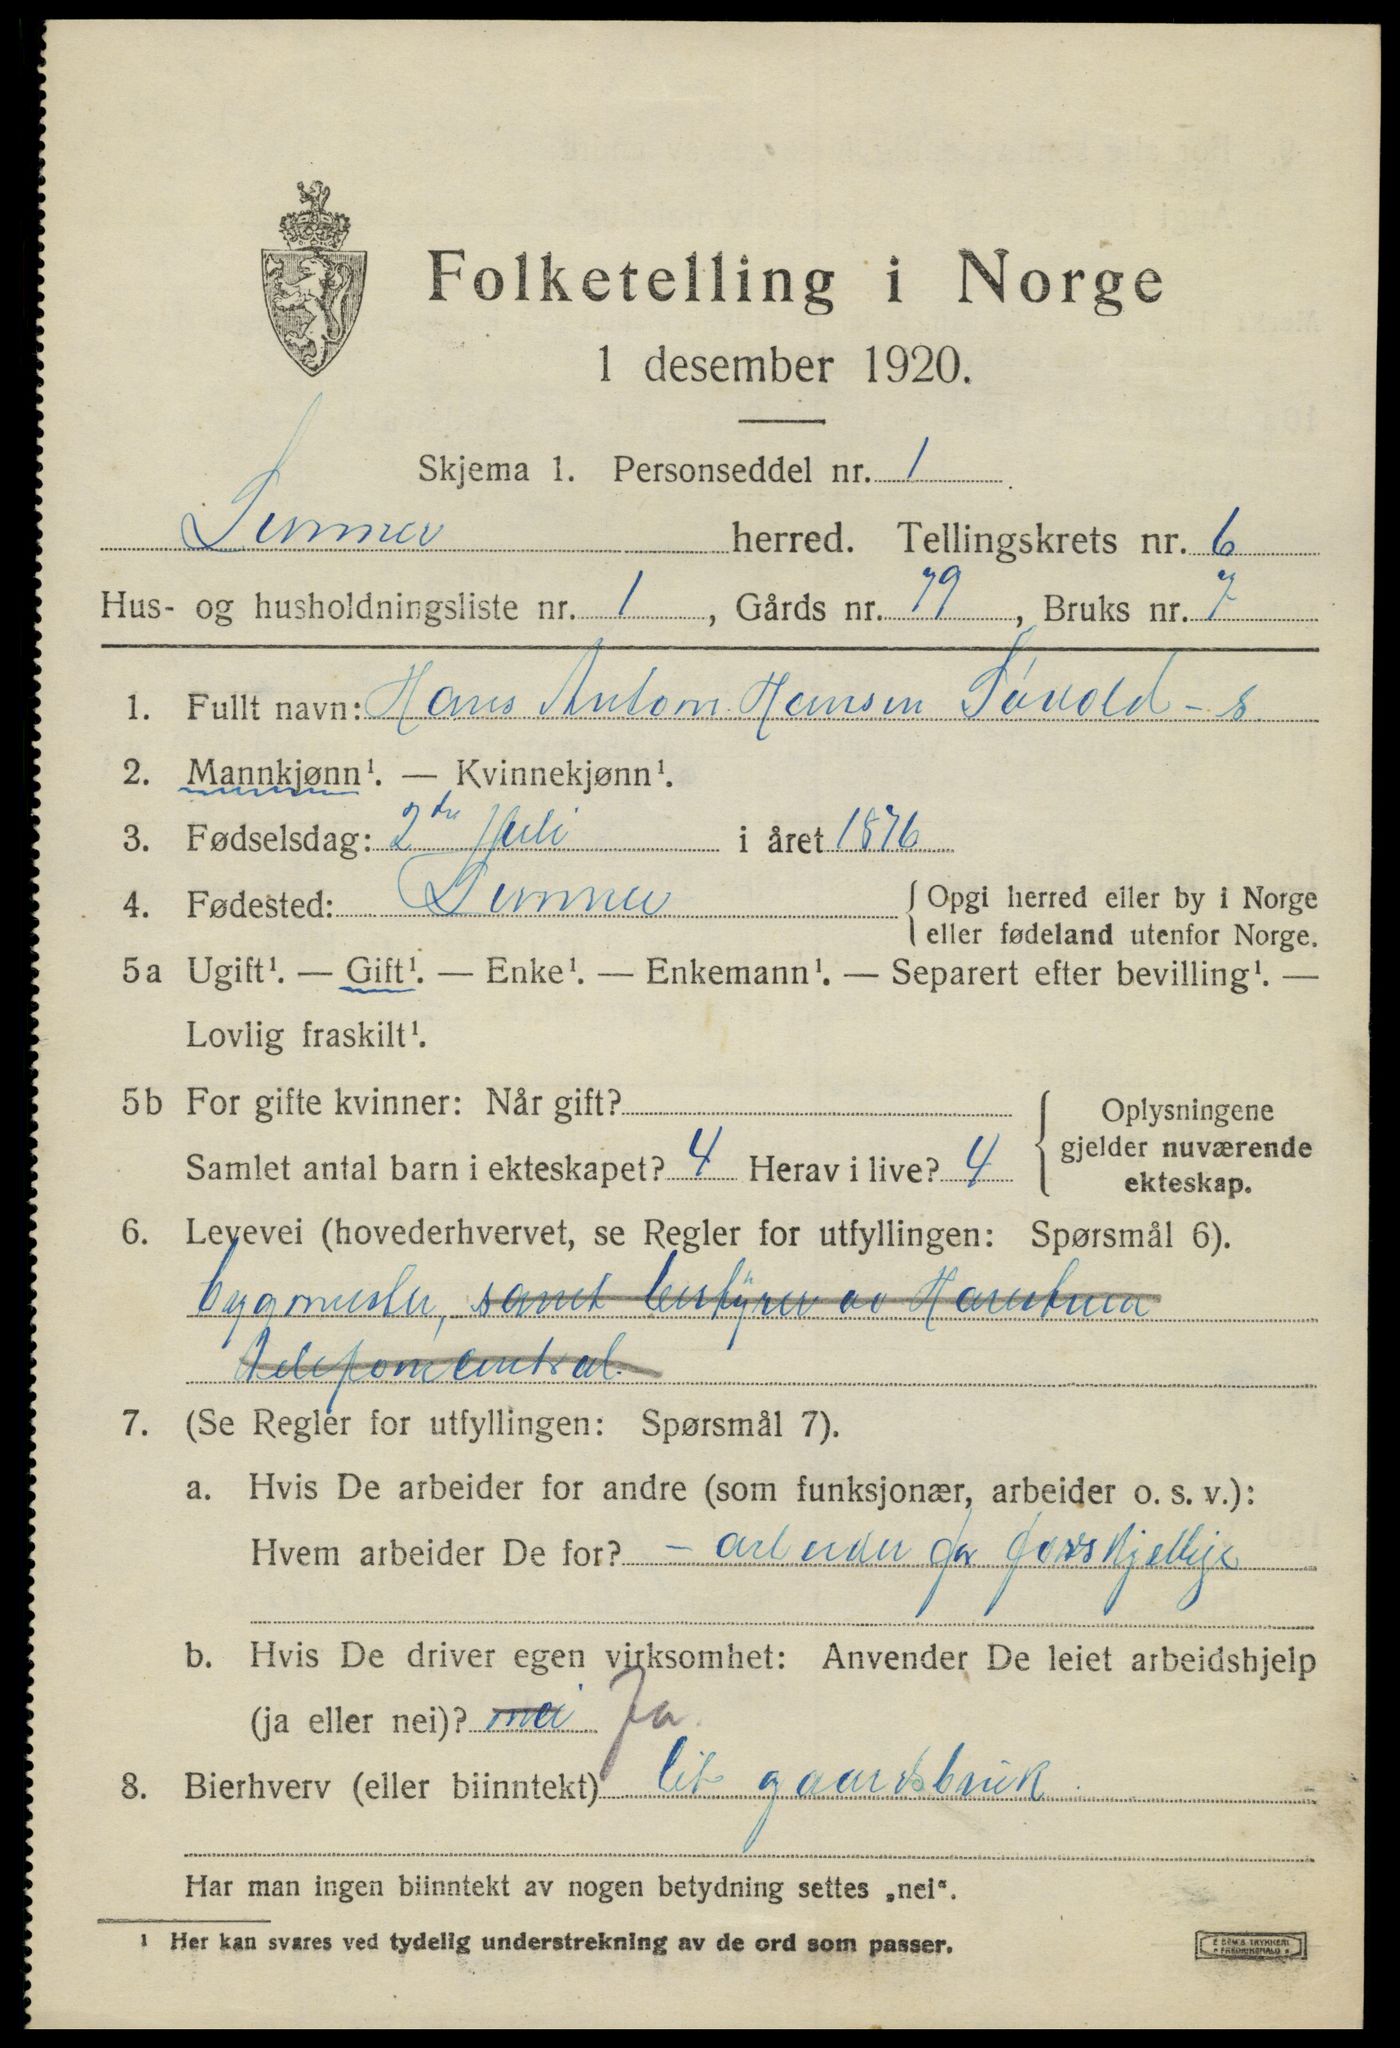 Folketelling i Norge
1 desember 1920.
Skjema 1. Personseddel nr. 1
herred. Tellingskrets nr. 6
Hus- og husholdningsliste nr. 1, Gårds nr. 79, Bruks nr. 7
1. Fullt navn: Hans Anton Hansen Søvold - s
2. Mannkjønn¹. — Kvinnekjønn¹.
3. Fødselsdag: 2den Juli i året 1876
4. Fødested: { Opgi herred eller by i Norge
eller fødeland utenfor Norge.
5a Ugift¹. — Gift¹. — Enke¹. — Enkemann¹. — Separert efter bevilling¹. —
Lovlig fraskilt¹.
5b For gifte kvinner: Når gift? { Oplysningene
gjelder nuværende
ekteskap.
Samlet antal barn i ekteskapet? 4 Herav i live? 4
6. Levevei (hovederhvervet, se Regler for utfyllingen: Spørsmål 6).
bygmester, samt bestyrer av
telefoncentral.
7. (Se Regler for utfyllingen: Spørsmål 7).
a. Hvis De arbeider for andre (som funksjonær, arbeider o. s. v.):
Hvem arbeider De for? - arbeider for forskjellige
b. Hvis De driver egen virksomhet: Anvender De leiet arbeidshjelp
(ja eller nei)? nei Ja.
8. Bierhverv (eller biinntekt) lit gaardsbruk.
Har man ingen biinntekt av nogen betydning settes „nei“.
¹ Her kan svares ved tydelig understrekning av de ord som passer.